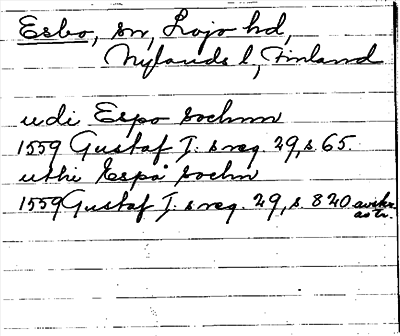 Esbo, sn, Lojo hd,
Nylands l, Finland
udi Espo sochnn
1559 Gustaf I: s reg. 29, s. 65.
uthi Espå sochn
1559 Gustaf I. s reg. 29, s. 820